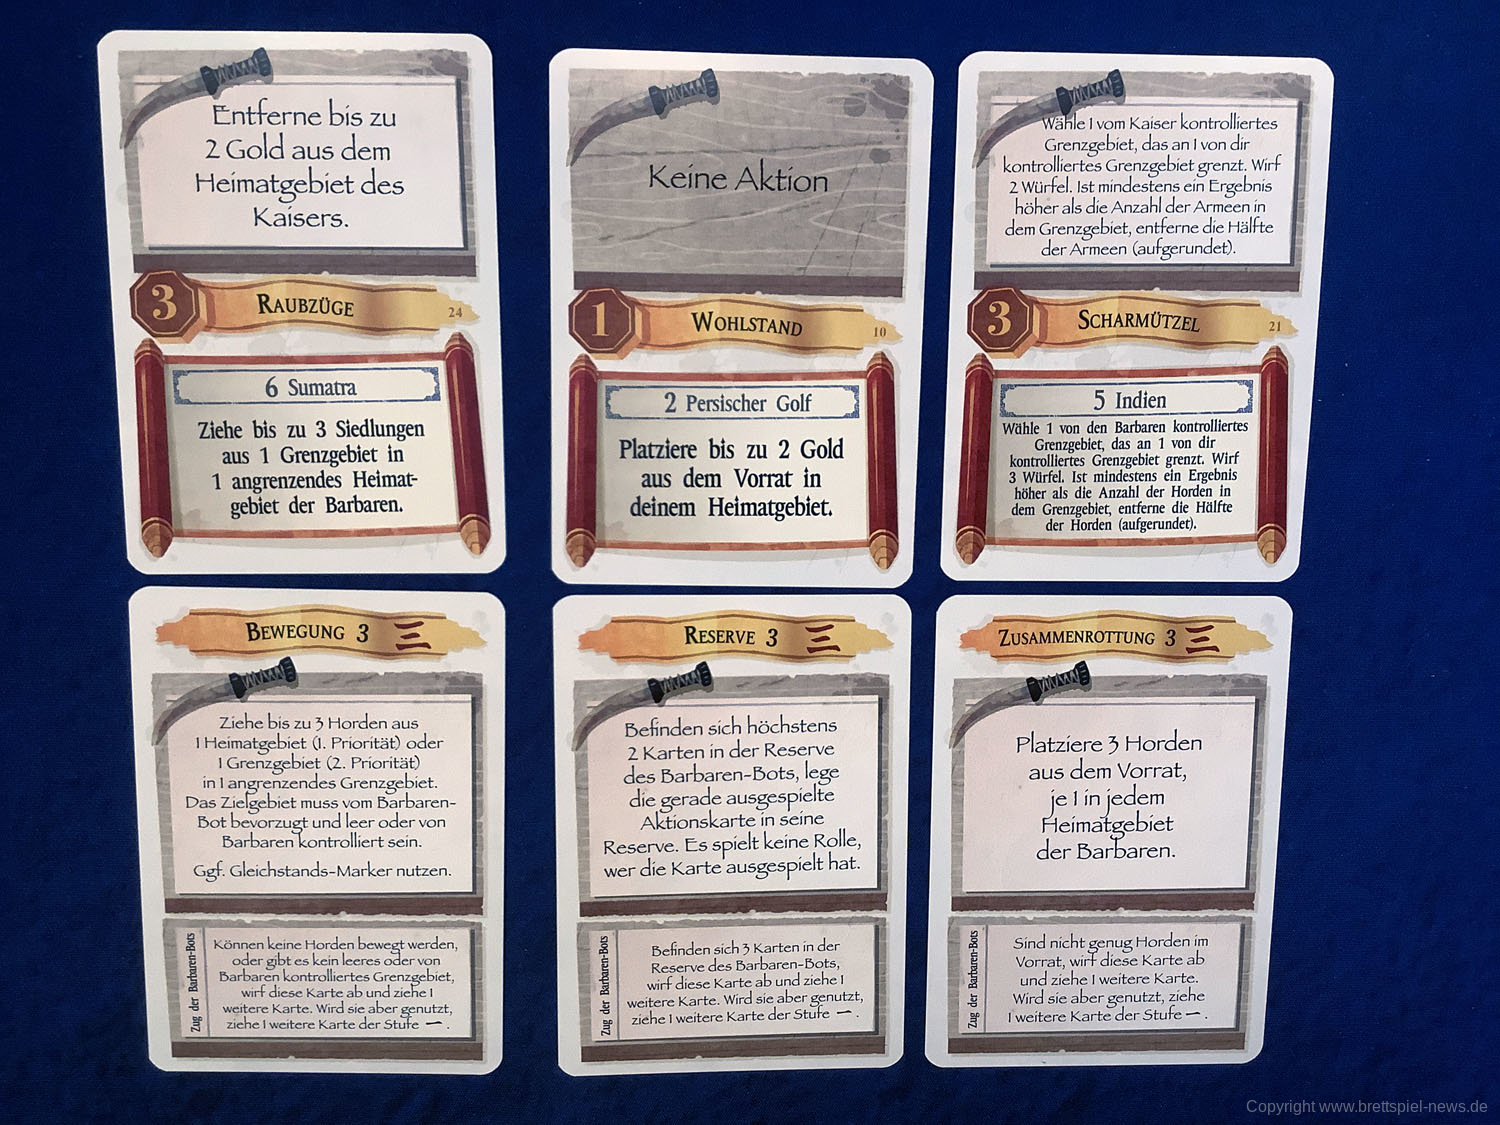 Entferne bis zu
2 Gold aus dem
Heimatgebiet des
Kaisers.
3
Raubzüge
24
6 Sumatra
Ziehe bis zu 3 Siedlungen
aus 1 Grenzgebiet in
1 angrenzendes Heimat-
gebiet der Barbaren.
Keine Aktion
1
Wohlstand
10
2 Persischer Golf
Platziere bis zu 2 Gold
aus dem Vorrat in
deinem Heimatgebiet.
Wähle 1 vom Kaiser kontrolliertes
Grenzgebiet, das an 1 von dir
kontrolliertes Grenzgebiet grenzt. Wirf
2 Würfel. Ist mindestens ein Ergebnis
höher als die Anzahl der Armeen in
dem Grenzgebiet, entferne die Hälfte
der Armeen (aufgerundet).
3
Scharmützel
21
5 Indien
Wähle 1 von den Barbaren kontrolliertes
Grenzgebiet, das an 1 von dir
kontrolliertes Grenzgebiet grenzt. Wirf
3 Würfel. Ist mindestens ein Ergebnis
höher als die Anzahl der Horden in
dem Grenzgebiet, entferne die Hälfte
der Horden (aufgerundet).
Bewegung 3 三
Ziehe bis zu 3 Horden aus
1 Heimatgebiet (1. Priorität) oder
1 Grenzgebiet (2. Priorität)
in 1 angrenzendes Grenzgebiet.
Das Zielgebiet muss vom Barbaren-
Bot bevorzugt und leer oder von
Barbaren kontrolliert sein.
Ggf. Gleichstands-Marker nutzen.
Zug der Barbaren-Bots
Können keine Horden bewegt werden,
oder gibt es kein leeres oder von
Barbaren kontrolliertes Grenzgebiet,
wirf diese Karte ab und ziehe 1
weitere Karte. Wird sie aber genutzt,
ziehe 1 weitere Karte der Stufe 一.
Reserve 3 三
Befinden sich höchstens
2 Karten in der Reserve
des Barbaren-Bots, lege
die gerade ausgespielte
Aktionskarte in seine
Reserve. Es spielt keine Rolle,
wer die Karte ausgespielt hat.
Zug der Barbaren-Bots
Befinden sich 3 Karten in der
Reserve des Barbaren-Bots,
wirf diese Karte ab und ziehe 1
weitere Karte. Wird sie aber genutzt,
ziehe 1 weitere Karte der Stufe 一.
Zusammenrottung 3 三
Platziere 3 Horden
aus dem Vorrat,
je 1 in jedem
Heimatgebiet
der Barbaren.
Zug der Barbaren-Bots
Sind nicht genug Horden im
Vorrat, wirf diese Karte ab
und ziehe 1 weitere Karte.
Wird sie aber genutzt, ziehe
1 weitere Karte der Stufe 一.
Copyright www.brettspiel-news.de